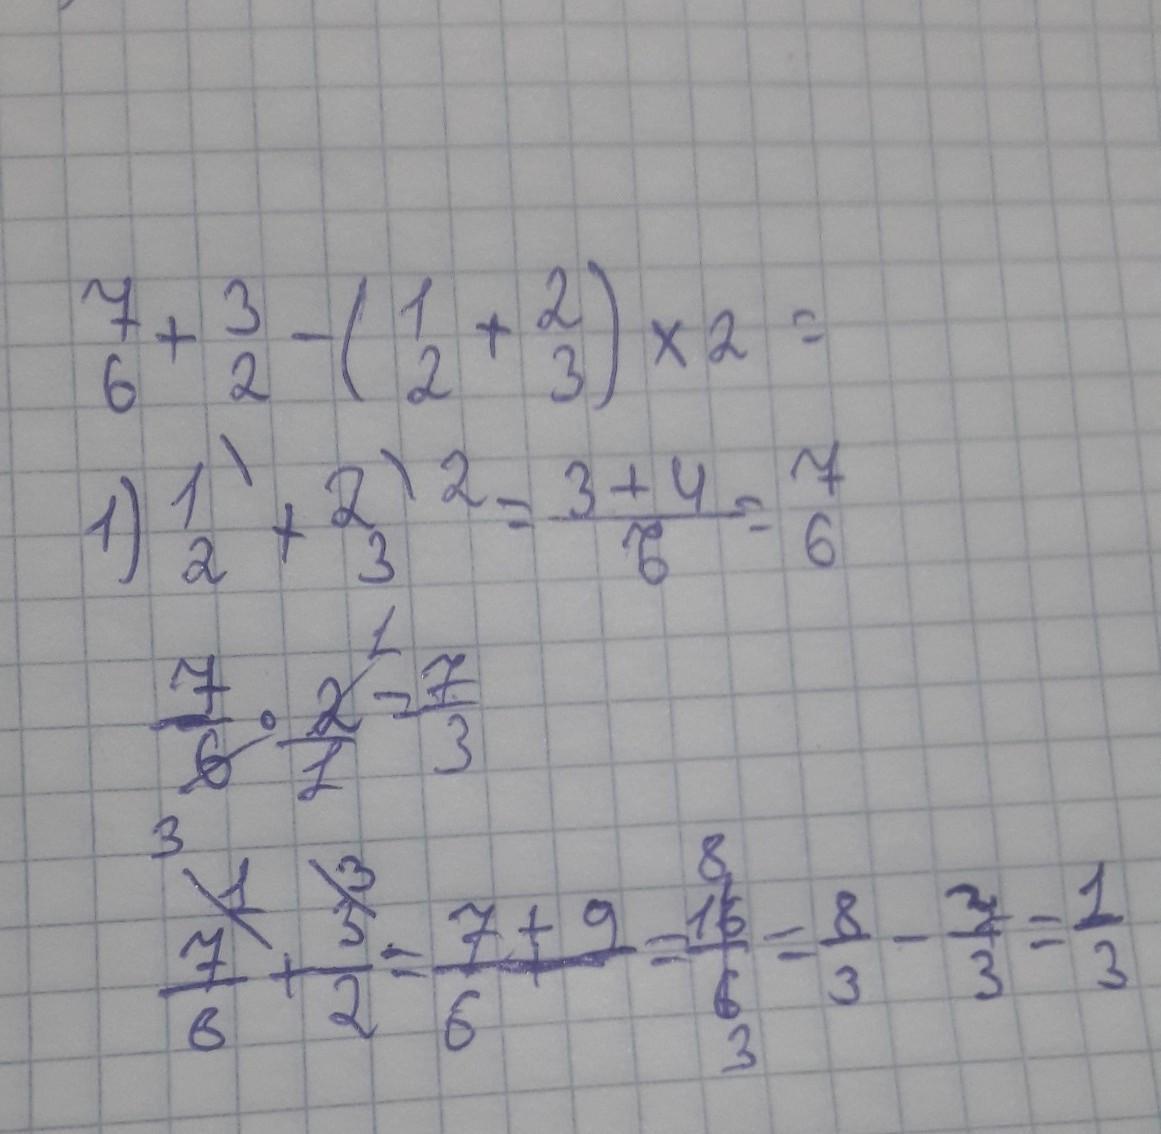 7/6 + 3/2 - (1/2 + 2/3) × 2 =
1) 1\/2 + 2\2/3 = 3+4/6 = 7/6
7/6 · 2/1 = 7/3
3 1
7\1/6 + 3\3/2 = 7+9/6 = 16/6 = 8/3 - 7/3 = 1/3
8 3